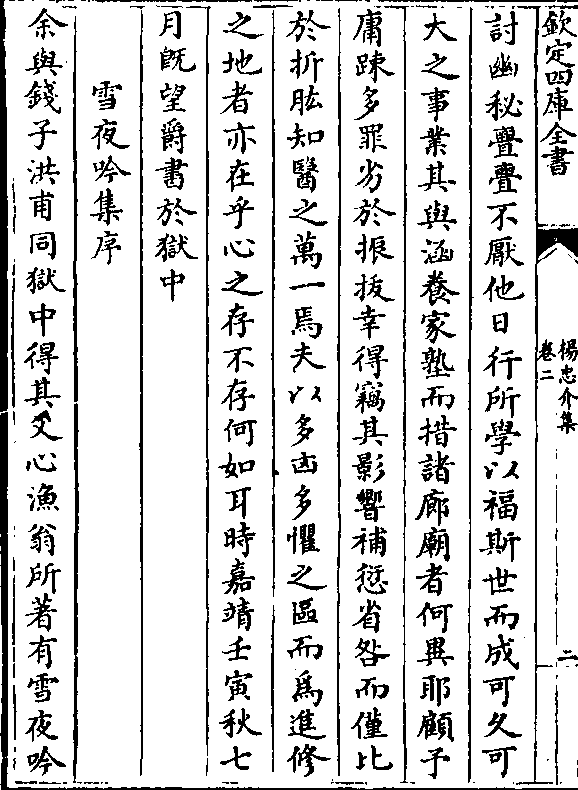 欽定四庫全書
楊忠介集
卷二
二
討幽秘亹亹不厭他日行所學以福斯世而成可久可
大之事業其與涵養家塾而措諸廊廟者何異耶顧予
庸踈多罪劣於振拔幸得竊其影響補愆省咎而僅比
於折肱知醫之萬一焉夫以多凶多懼之區而爲進修
之地者亦在乎心之存不存何如耳時嘉靖壬寅秋七
月旣望爵書於獄中
雪夜吟集序
余與錢子洪甫同獄中得其父心漁翁所著有雪夜吟